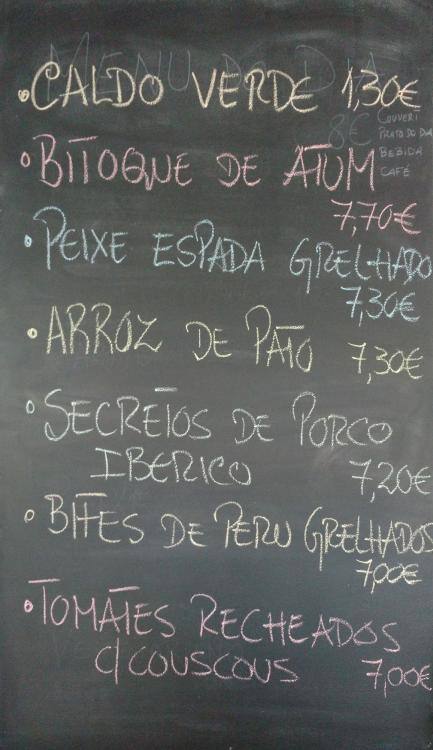 MENU DO DIA
• CALDO VERDE 1,30€
8€ COUVERT
PRATO DO DIA
BEBIDA
CAFÉ
• BITOQUE DE ATUM
7,70€
• PEIXE ESPADA GRELHADO
7,30€
• ARROZ DE PATO 7,30€
• SECRETOS DE PORCO
IBERICO 7,20€
• BIFES DE PERU GRELHADOS
7,00€
• TOMATES RECHEADOS
C/COUSCOUS 7,00€